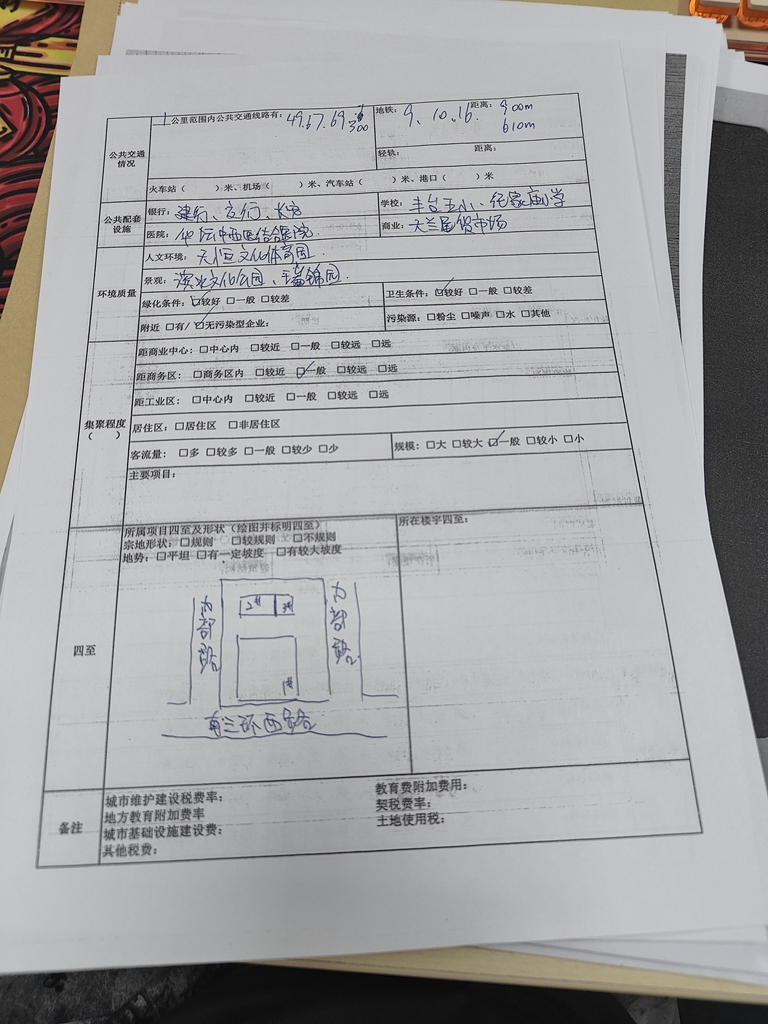 公共交通情况
1公里范围内公共交通线路有：49.67.69.300
地铁：9、10、16. 距离：900m
610m
轻轨： 距离：
火车站（ ）米、机场（ ）米、汽车站（ ）米、港口（ ）米
公共配套设施
银行：建行、交行、
学校：丰台五小、
医院：中西医结合医院.
商业：天兰尾货市场
环境质量
人文环境：天恒文化体育园.
景观：文化公园、
绿化条件：☑较好 □一般 □较差
卫生条件：☑较好 □一般 □较差
附近 □有/☑无污染型企业：
污染源：□粉尘 □噪声 □水 □其他
集聚程度（ ）
距商业中心：□中心内 □较近 □一般 □较远 □远
距商务区：□商务区内 □较近 ☑一般 □较远 □远
距工业区：□中心内 □较近 □一般 □较远 □远
居住区：□居住区 □非居住区
客流量：□多 □较多 □一般 □较少 □少
规模：□大 □较大 ☑一般 □较小 □小
主要项目：
四至
所属项目四至及形状（绘图并标明四至）
宗地形状：□规则 □较规则 □不规则
地势：□平坦 □有一定坡度 □有较大坡度
所在楼宇四至：
2# 3#
1#
南三环西路
备注
城市维护建设税费率：
教育费附加费用：
地方教育附加费率
契税费率：
城市基础设施建设费：
土地使用税：
其他税费：